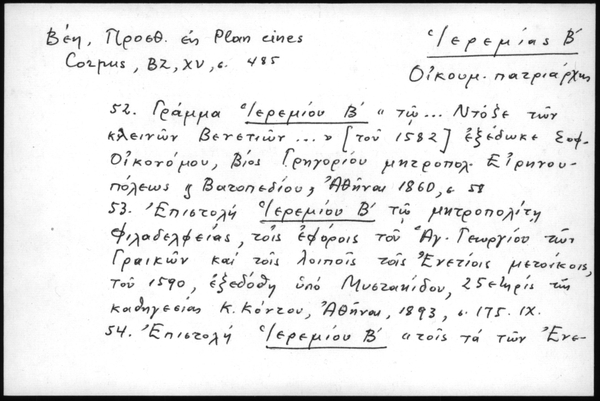 Βέη, Προσθ. εἰς Plan eines
Corpus, BZ, XV, σ. 485
Ἱερεμίας Β΄
Οἰκουμ. πατριάρχης
52. Γράμμα Ἱερεμίου Β΄ «τῷ... Ντόζε τῶν
κλεινῶν Βενετιῶν...» [τοῦ 1582] ἐξέδωκε Σοφ.
Οἰκονόμου, Βίος Γρηγορίου μητροπολ. Εἰρηνου-
πόλεως & Βατοπεδίου, Ἀθῆναι 1860, σ. 58
53. Ἐπιστολή Ἱερεμίου Β΄ τῷ μητροπολίτῃ
Φιλαδελφείας, τοῖς ἐφόροις τοῦ Ἁγ. Γεωργίου τῶν
Γραικῶν καί τοῖς λοιποῖς τοῖς Ἐνετίοις μετοίκοις,
τοῦ 1590, ἐξεδόθη ὑπό Μυστακίδου, 25ετηρίς τῆς
καθηγεσίας Κ. Κόντου, Ἀθῆναι, 1893, σ. 175. IX.
54. Ἐπιστολή Ἱερεμίου Β΄ «τοῖς τά τῶν Ἐνε-